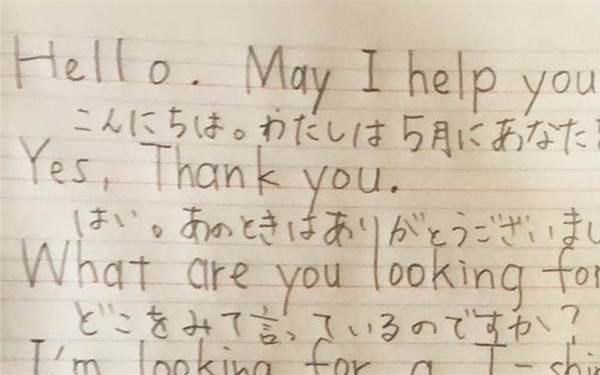 Hello. May I help you
こんにちは。わたしは5月にあなた
Yes, Thank you.
はい。あのときはありがとうございまし
What are you looking for
どこをみて言っているのですか?
I'm looking for a T-shir